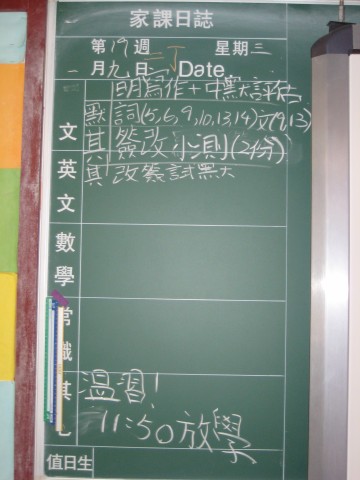 家課日誌
第19週 二J 星期三
一月九日 Date
明寫作+中默大評估
默 詞(5,6,9,10,13,14)文(9,13)
文 其 簽改小測(2份)
英 其 改簽試默大
文
數
學
常
識
其 溫習!
11:50放學
值日生